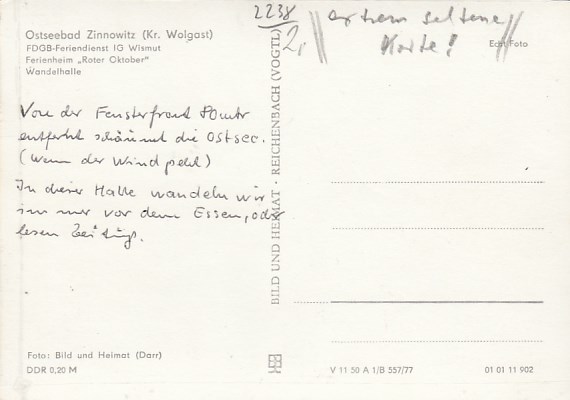 Ostseebad Zinnowitz (Kr. Wolgast)
FDGB-Feriendienst IG Wismut
Ferienheim „Roter Oktober"
Wandelhalle
2238
2,
extrem seltene
Karte!
Echt Foto
Von der Fensterfront 80 mtr
entfernt schäumt die Ostsee.
(wenn der Wind pehl)
In dieser Halle wandeln wir
immer vor dem Essen, oder
lesen Zeitung.
BILD UND HEIMAT · REICHENBACH (VOGTL)
Foto: Bild und Heimat (Darr)
DDR 0,20 M
V 11 50 A 1/B 557/77
01 01 11 902